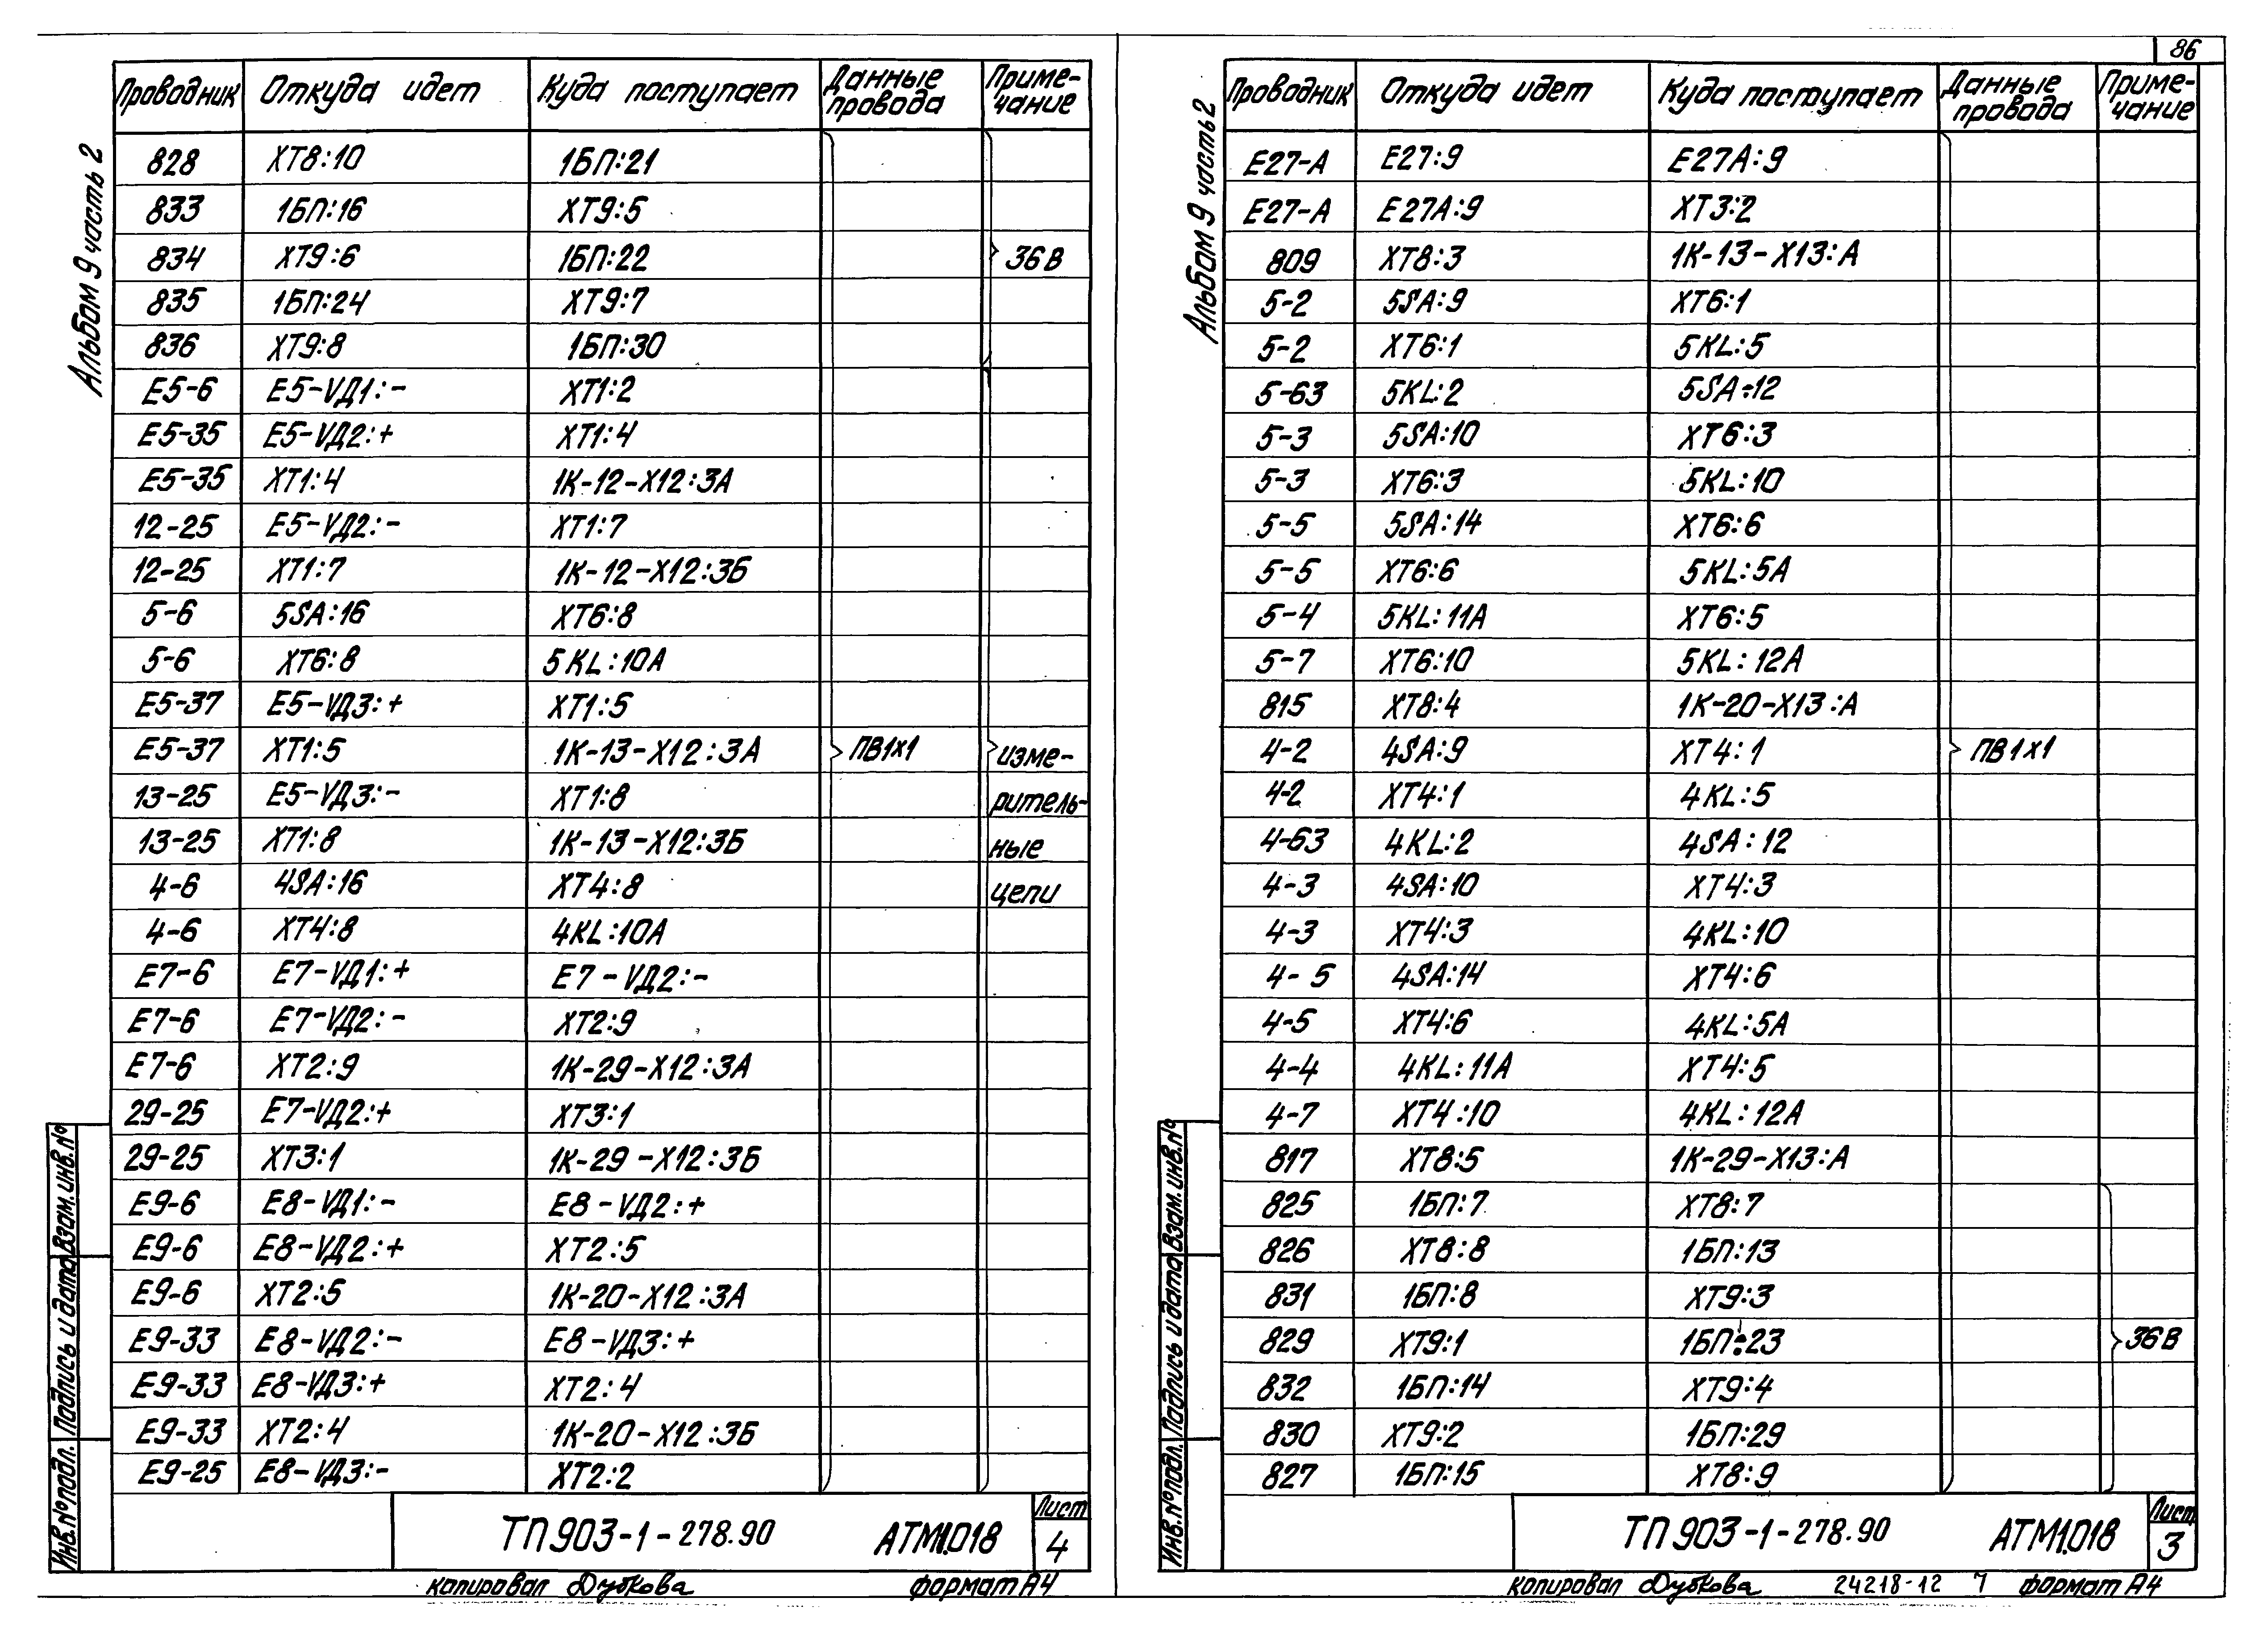 86
Альбом 9 часть 2
Проводник Откуда идет Куда поступает Данные провода Приме-чание
828 XT8:10 1БП:21
833 1БП:16 XT9:5
834 XT9:6 1БП:22 36В
835 1БП:24 XT9:7
836 XT9:8 1БП:30
E5-6 E5-VД1:- XT1:2
E5-35 E5-VД2:+ XT1:4
E5-35 XT1:4 1К-12-X12:3А
12-25 E5-VД2:- XT1:7
12-25 XT1:7 1К-12-X12:3Б
5-6 5SA:16 XT6:8
5-6 XT6:8 5KL:10А
E5-37 E5-VД3:+ XT1:5
E5-37 XT1:5 1К-13-X12:3А ПВ1х1 изме-
13-25 E5-VД3:- XT1:8 ритель-
13-25 XT1:8 1К-13-X12:3Б ные
4-6 4SA:16 XT4:8 цепи
4-6 XT4:8 4KL:10А
E7-6 E7-VД1:+ E7-VД2:-
E7-6 E7-VД2:- XT2:9
E7-6 XT2:9 1К-29-X12:3А
29-25 E7-VД2:+ XT3:1
29-25 XT3:1 1К-29-X12:3Б
E9-6 E8-VД1:- E8-VД2:+
E9-6 E8-VД2:+ XT2:5
E9-6 XT2:5 1К-20-X12:3А
E9-33 E8-VД2:- E8-VД3:+
E9-33 E8-VД3:+ XT2:4
E9-33 XT2:4 1К-20-X12:3Б
E9-25 E8-VД3:- XT2:2
Инв.№подл. Подпись и дата Взам.инв.№
ТП903-1-278.90 АТМ1.018 Лист 4
копировал Дубкова формат А4
Альбом 9 часть 2
Проводник Откуда идет Куда поступает Данные провода Приме-чание
E27-А E27:9 E27А:9
E27-А E27А:9 XT3:2
809 XT8:3 1К-13-X13:А
5-2 5SA:9 XT6:1
5-2 XT6:1 5KL:5
5-63 5KL:2 5SA:12
5-3 5SA:10 XT6:3
5-3 XT6:3 5KL:10
5-5 5SA:14 XT6:6
5-5 XT6:6 5KL:5А
5-4 5KL:11А XT6:5
5-7 XT6:10 5KL:12А
815 XT8:4 1К-20-X13:А
4-2 4SA:9 XT4:1 ПВ1х1
4-2 XT4:1 4KL:5
4-63 4KL:2 4SA:12
4-3 4SA:10 XT4:3
4-3 XT4:3 4KL:10
4-5 4SA:14 XT4:6
4-5 XT4:6 4KL:5А
4-4 4KL:11А XT4:5
4-7 XT4:10 4KL:12А
817 XT8:5 1К-29-X13:А
825 1БП:7 XT8:7
826 XT8:8 1БП:13
831 1БП:8 XT9:3
829 XT9:1 1БП:23 36В
832 1БП:14 XT9:4
830 XT9:2 1БП:29
827 1БП:15 XT8:9
Инв.№подл. Подпись и дата Взам.инв.№
ТП903-1-278.90 АТМ1.018 Лист 3
копировал Дубкова 24218-12 7 формат А4